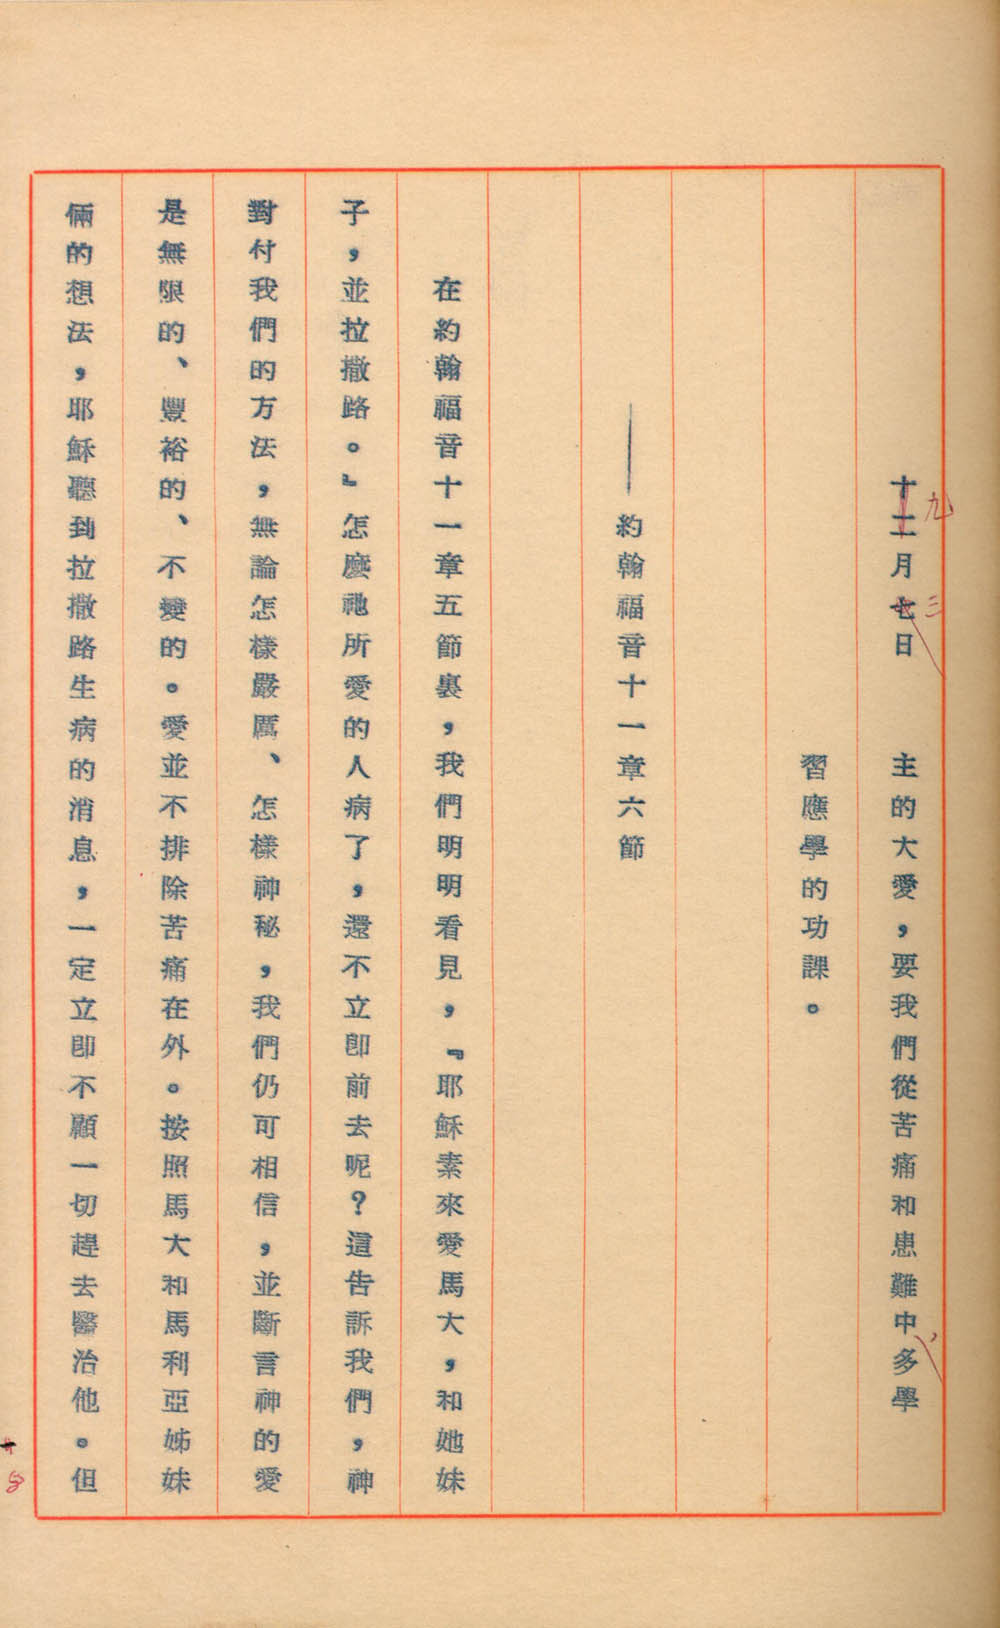 十二月七日　　主的大愛，要我們從苦痛和患難中多學
九
三
，
習應學的功課。
——約翰福音十一章六節
在約翰福音十一章五節裏，我們明明看見，『耶穌素來愛馬大，和她妹
子，並拉撒路。』怎麼祂所愛的人病了，還不立卽前去呢？這告訴我們，神
對付我們的方法，無論怎樣嚴厲、怎樣神秘，我們仍可相信，並斷言神的愛
是無限的、豐裕的、不變的。愛並不排除苦痛在外。按照馬大和馬利亞姊妹
倆的想法，耶穌聽到拉撒路生病的消息，一定立卽不顧一切趕去醫治他。但